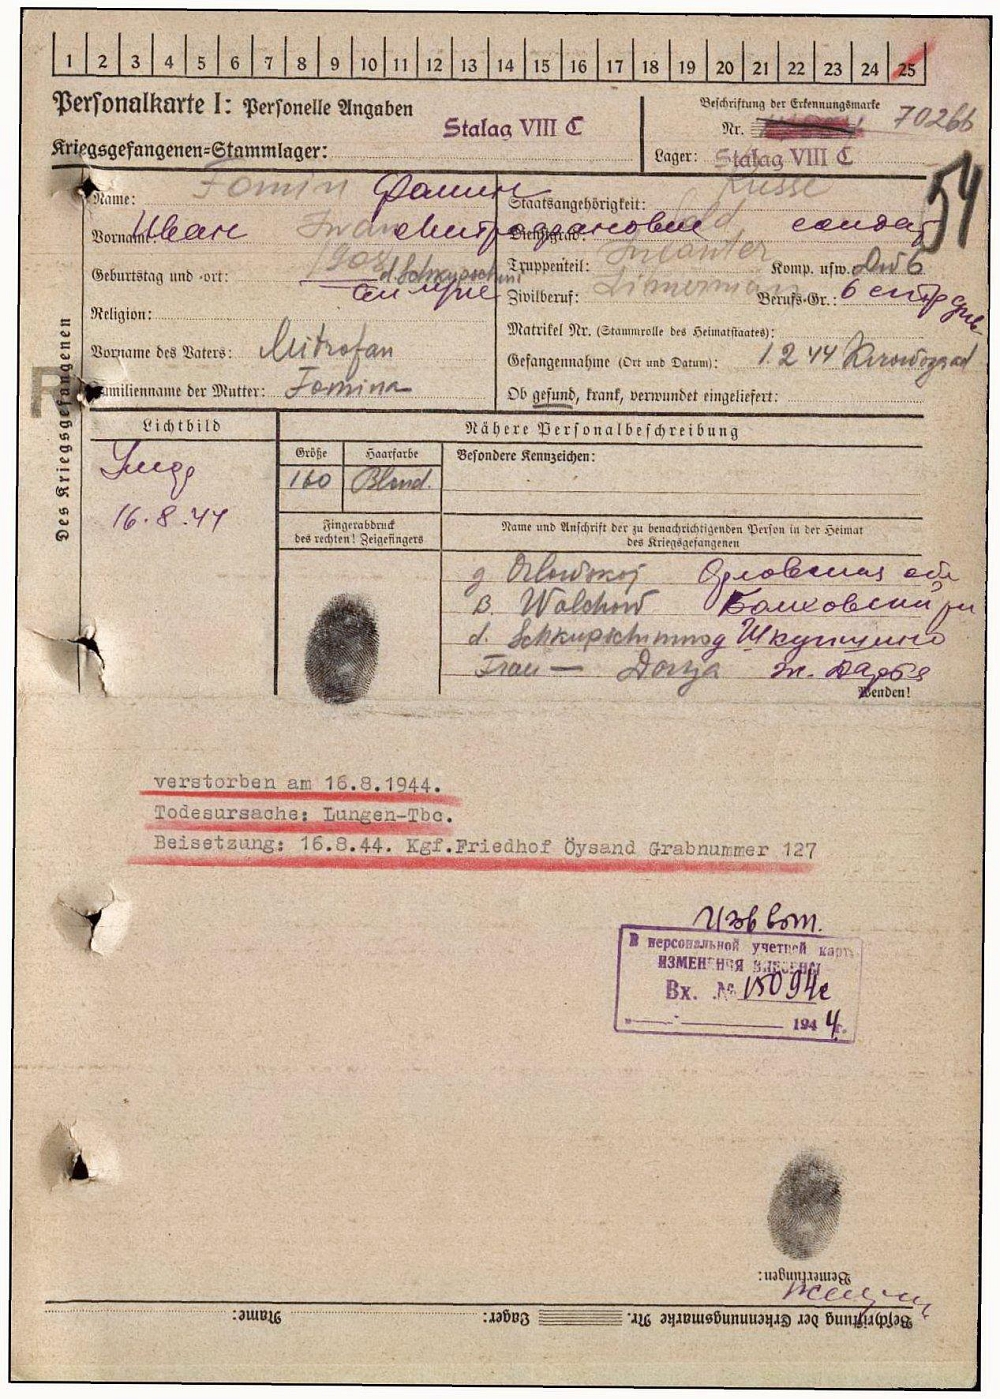 1 2 3 4 5 6 7 8 9 10 11 12 13 14 15 16 17 18 19 20 21 22 23 24 25
Personalkarte I: Personelle Angaben
Beschriftung der Erkennungsmarke
Stalag VIII C
Nr. 70266
Kriegsgefangenen-Stammlager:
Lager: Stalag VIII C
54
Des Kriegsgefangenen
Name: Fomin Фомин
Staatsangehörigkeit: Russe
Vorname: Иван Iwan Митрофанович
Dienstgrad: Sold солдат
Geburtstag und -ort: 1908
Truppenteil: Komp. usw.
Zivilberuf: Berufs-Gr.:
Religion:
Matrikel Nr. (Stammrolle des Heimatstaates):
Vorname des Vaters: Mitrofan
Gefangennahme (Ort und Datum): 1.2 44 Kirowograd
Familienname der Mutter: Fomina
Ob gesund, krank, verwundet eingeliefert:
Lichtbild
Nähere Personalbeschreibung
Größe
Haarfarbe
Besondere Kennzeichen:
160 Blond.
16.8.44
Fingerabdruck
des rechten! Zeigefingers
Name und Anschrift der zu benachrichtigenden Person in der Heimat
des Kriegsgefangenen
g Orlowskoj Орловская обл
B. Wolchow
d. Шкупшино
Frau — Darja ж. Дарья
Wenden!
verstorben am 16.8.1944.
Todesursache: Lungen-Tbc.
Beisetzung: 16.8.44. Kgf.Friedhof Öysand Grabnummer 127
В персональной учетной карт.
ИЗМЕНЕНИЯ ВНЕСЕНЫ
Вх. № 15094с
194 4 г.
Bemerkungen:
Beschriftung der Erkennungsmarke Nr. Lager: Name: